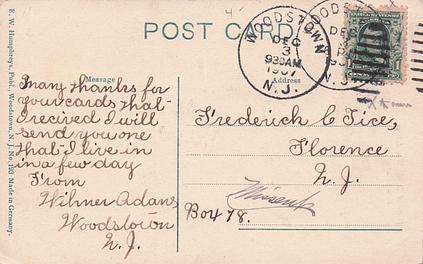 POST CARD
WOODSTOWN
DEC
3
930AM
1907
N.J.
Message
Address
E. W. Humphreys, Publ., Woodstown, N. J. No. 193 Made in Germany.
Many thanks for
your cards that
I recived I will
send you one
that I live in
in a few day
From
Wilmer Adams
Woodstown
N.J.
Frederick C Tice,
Florence
N.J.
Box 78.
Missent